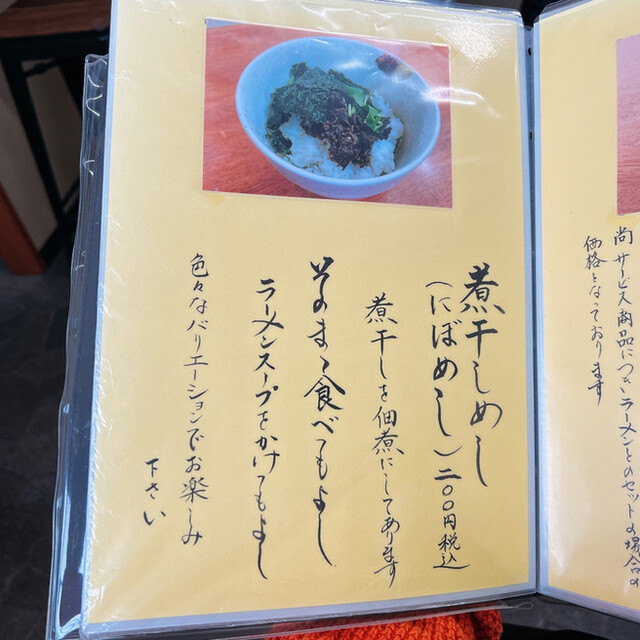 尚サービス商品につきラーメンとのセットの場合の
価格となっております
煮干しめし
（にぼめし）二〇〇円税込
煮干しを佃煮にしてあります
そのまゝ食べてもよし
ラーメンスープをかけてもよし
色々なバリエーションでお楽しみ
下さい